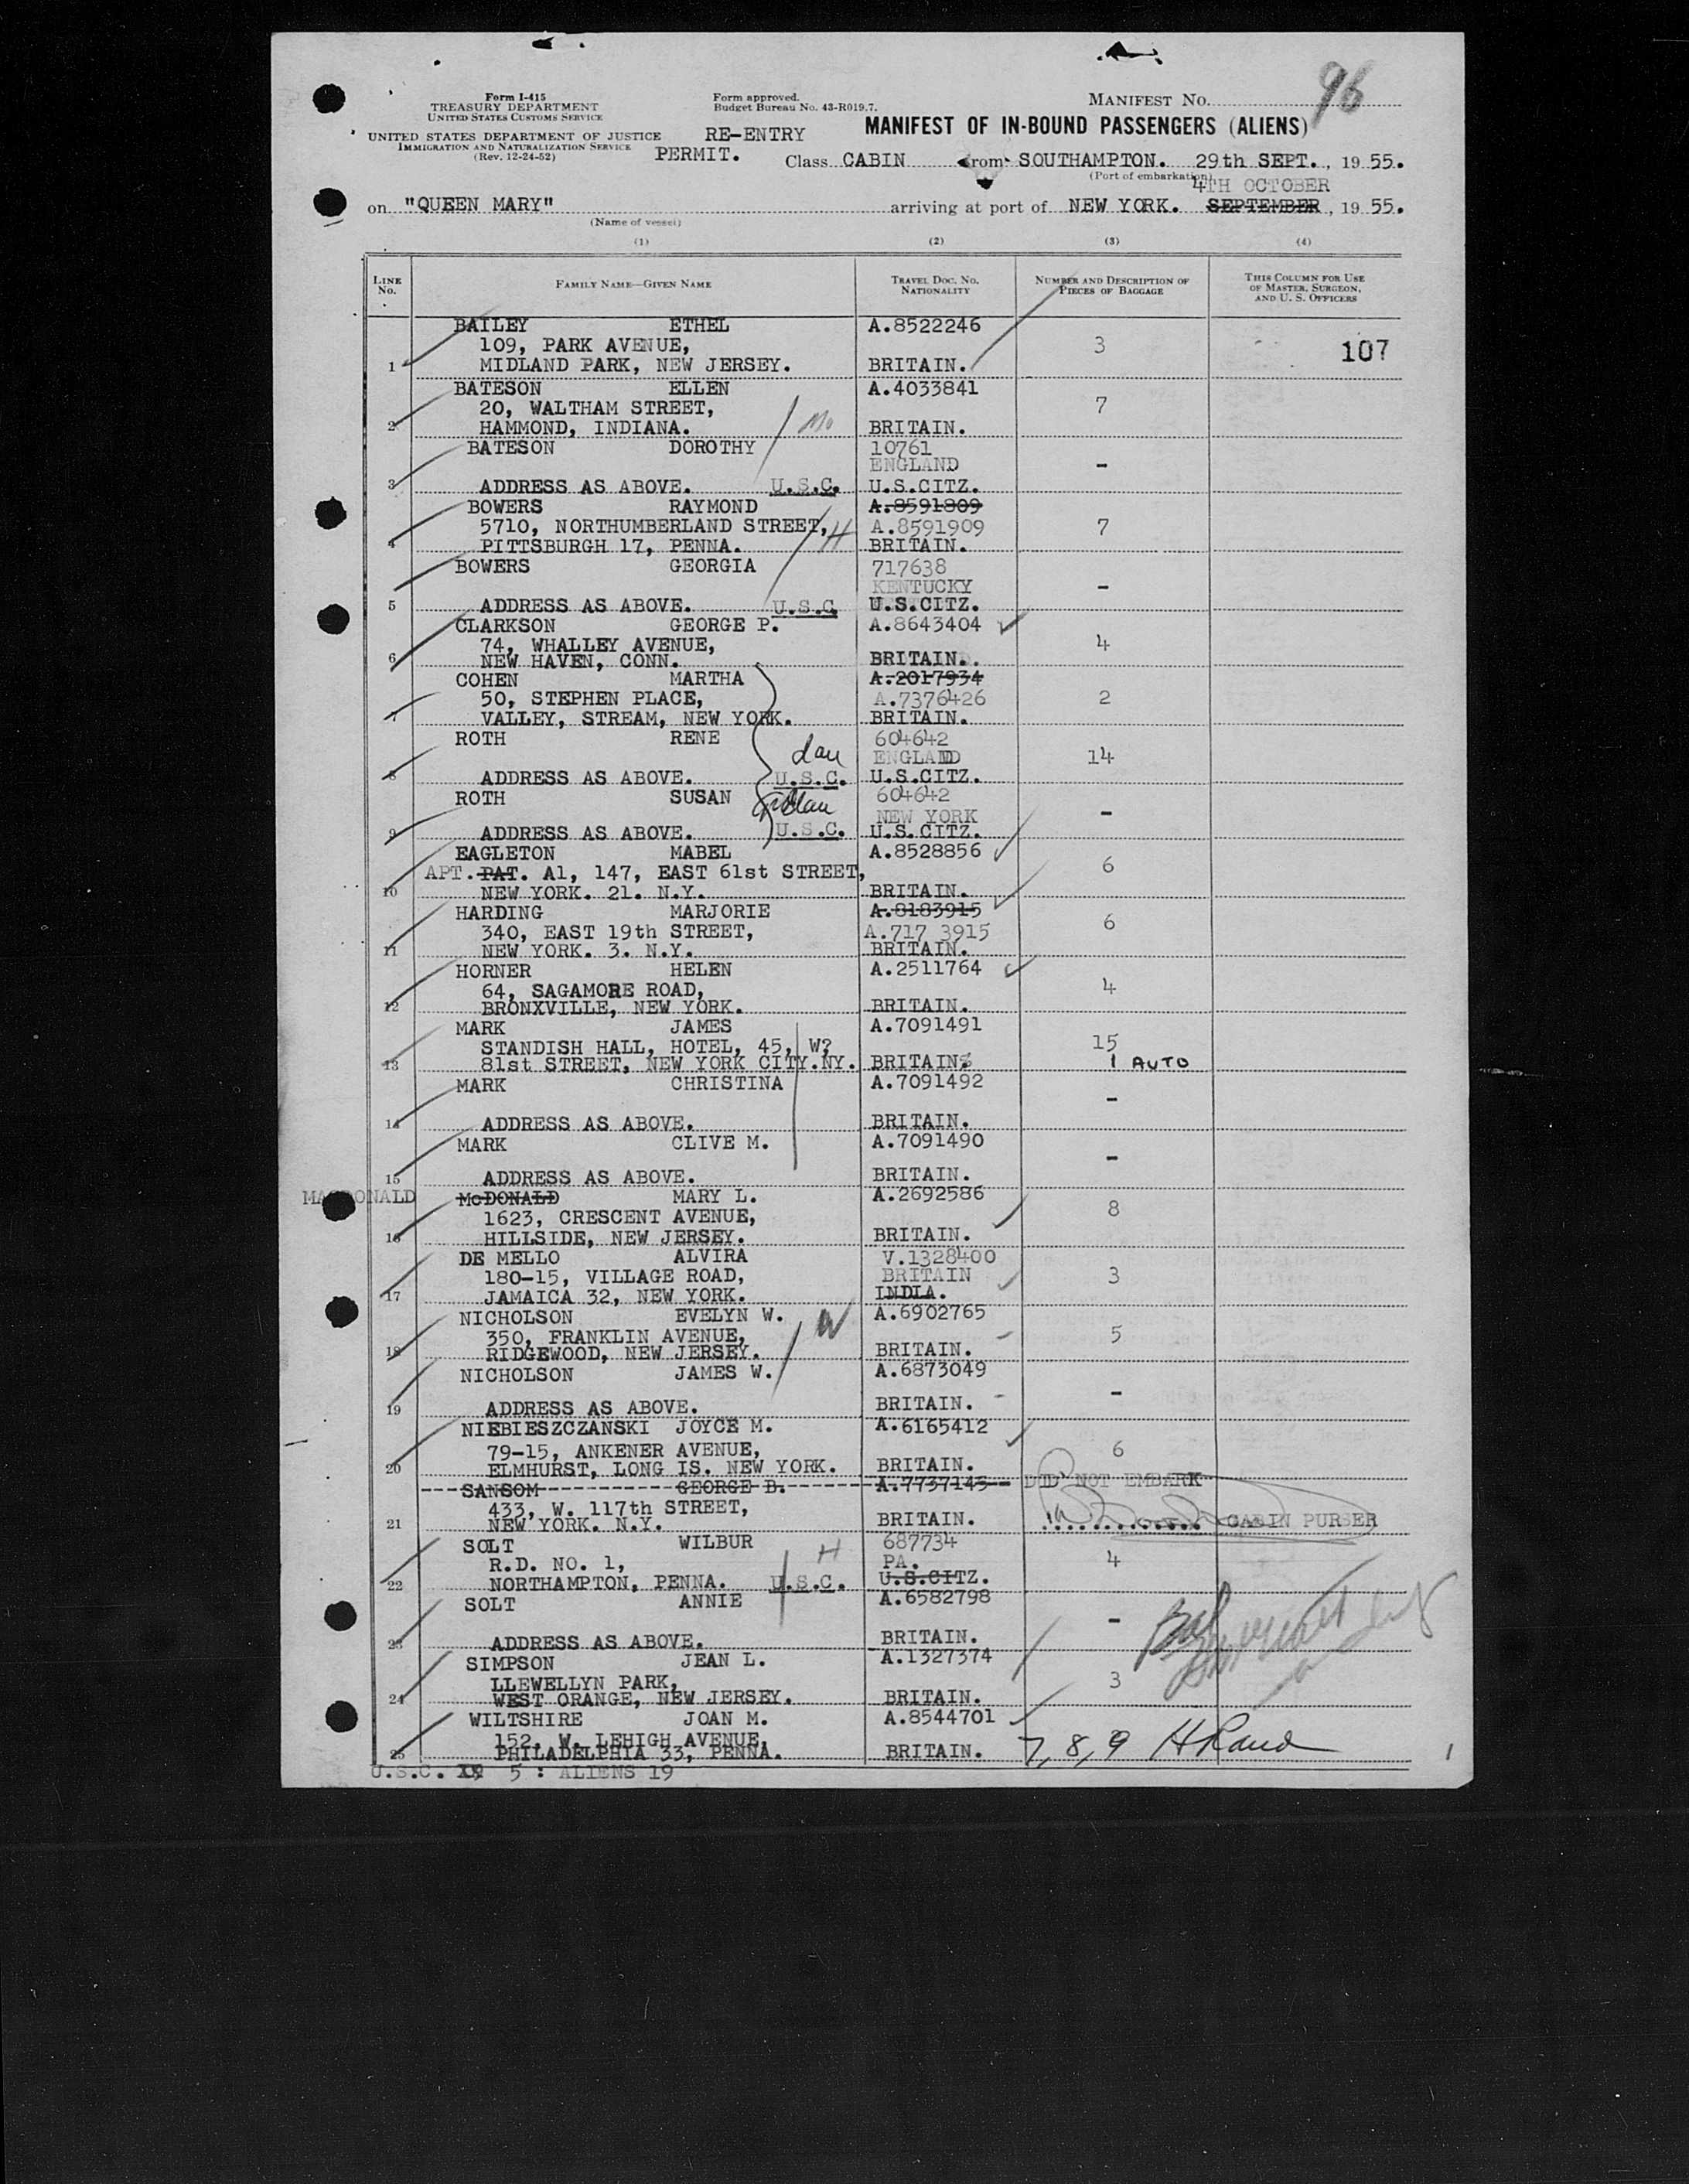 96
Form I-415
TREASURY DEPARTMENT
UNITED STATES CUSTOMS SERVICE
UNITED STATES DEPARTMENT OF JUSTICE
IMMIGRATION AND NATURALIZATION SERVICE
(Rev. 12-24-52)
Form approved.
Budget Bureau No. 43-R019.7.
RE-ENTRY
PERMIT.
MANIFEST NO.
MANIFEST OF IN-BOUND PASSENGERS (ALIENS)
Class CABIN from SOUTHAMPTON. 29th SEPT., 1955.
(Port of embarkation)
4TH OCTOBER
on "QUEEN MARY" arriving at port of NEW YORK. SEPTEMBER, 1955.
(Name of vessel)
(1) (2) (3) (4)
LINE NO. FAMILY NAME—GIVEN NAME TRAVEL DOC. NO. NATIONALITY NUMBER AND DESCRIPTION OF PIECES OF BAGGAGE THIS COLUMN FOR USE OF MASTER, SURGEON, AND U. S. OFFICERS
BAILEY ETHEL A.8522246
109, PARK AVENUE, 3 107
1 MIDLAND PARK, NEW JERSEY. BRITAIN.
BATESON ELLEN A.4033841
20, WALTHAM STREET, 7
2 HAMMOND, INDIANA. BRITAIN.
BATESON DOROTHY 10761
ENGLAND -
3 ADDRESS AS ABOVE. U.S.C. U.S.CITZ.
BOWERS RAYMOND A.8591809
5710, NORTHUMBERLAND STREET, H A.8591909 7
4 PITTSBURGH 17, PENNA. BRITAIN.
BOWERS GEORGIA 717638
KENTUCKY -
5 ADDRESS AS ABOVE. U.S.C. U.S.CITZ.
CLARKSON GEORGE P. A.8643404
74, WHALLEY AVENUE, 4
6 NEW HAVEN, CONN. BRITAIN.
COHEN MARTHA A.2017934
50, STEPHEN PLACE, A.7376426 2
7 VALLEY, STREAM, NEW YORK. BRITAIN.
ROTH RENE 604642
dau ENGLAND 14
8 ADDRESS AS ABOVE. U.S.C. U.S.CITZ.
ROTH SUSAN 604642
NEW YORK -
9 ADDRESS AS ABOVE. U.S.C. U.S.CITZ.
EAGLETON MABEL A.8528856
APT. PAT. A1, 147, EAST 61st STREET, 6
10 NEW YORK. 21. N.Y. BRITAIN.
HARDING MARJORIE A.8183915
340, EAST 19th STREET, A.717 3915 6
11 NEW YORK. 3. N.Y. BRITAIN.
HORNER HELEN A.2511764
64, SAGAMORE ROAD, 4
12 BRONXVILLE, NEW YORK. BRITAIN.
MARK JAMES A.7091491
STANDISH HALL, HOTEL, 45, W? 15
13 81st STREET, NEW YORK CITY.NY. BRITAIN. 1 AUTO
MARK CHRISTINA A.7091492
-
14 ADDRESS AS ABOVE. BRITAIN.
MARK CLIVE M. A.7091490
-
15 ADDRESS AS ABOVE. BRITAIN.
MACDONALD McDONALD MARY L. A.2692586
1623, CRESCENT AVENUE, 8
16 HILLSIDE, NEW JERSEY. BRITAIN.
DE MELLO ALVIRA V.1328400
180-15, VILLAGE ROAD, BRITAIN 3
17 JAMAICA 32, NEW YORK. INDIA.
NICHOLSON EVELYN W. A.6902765
350, FRANKLIN AVENUE, 5
18 RIDGEWOOD, NEW JERSEY. BRITAIN.
NICHOLSON JAMES W. A.6873049
-
19 ADDRESS AS ABOVE. BRITAIN.
NIEBIESZCZANSKI JOYCE M. A.6165412
79-15, ANKENER AVENUE, 6
20 ELMHURST, LONG IS. NEW YORK. BRITAIN.
SANSOM GEORGE B. A.7737143 DID NOT EMBARK
433, W. 117th STREET,
21 NEW YORK. N.Y. BRITAIN. CABIN PURSER
SOLT WILBUR 687734
R.D. NO. 1, H PA. 4
22 NORTHAMPTON, PENNA. U.S.C. U.S.CITZ.
SOLT ANNIE A.6582798
-
23 ADDRESS AS ABOVE. BRITAIN.
SIMPSON JEAN L. A.1327374
LLEWELLYN PARK, 3
24 WEST ORANGE, NEW JERSEY. BRITAIN.
WILTSHIRE JOAN M. A.8544701
152, W. LEHIGH AVENUE,
25 PHILADELPHIA 33, PENNA. BRITAIN. 7, 8, 9
U.S.C. 5 : ALIENS 19